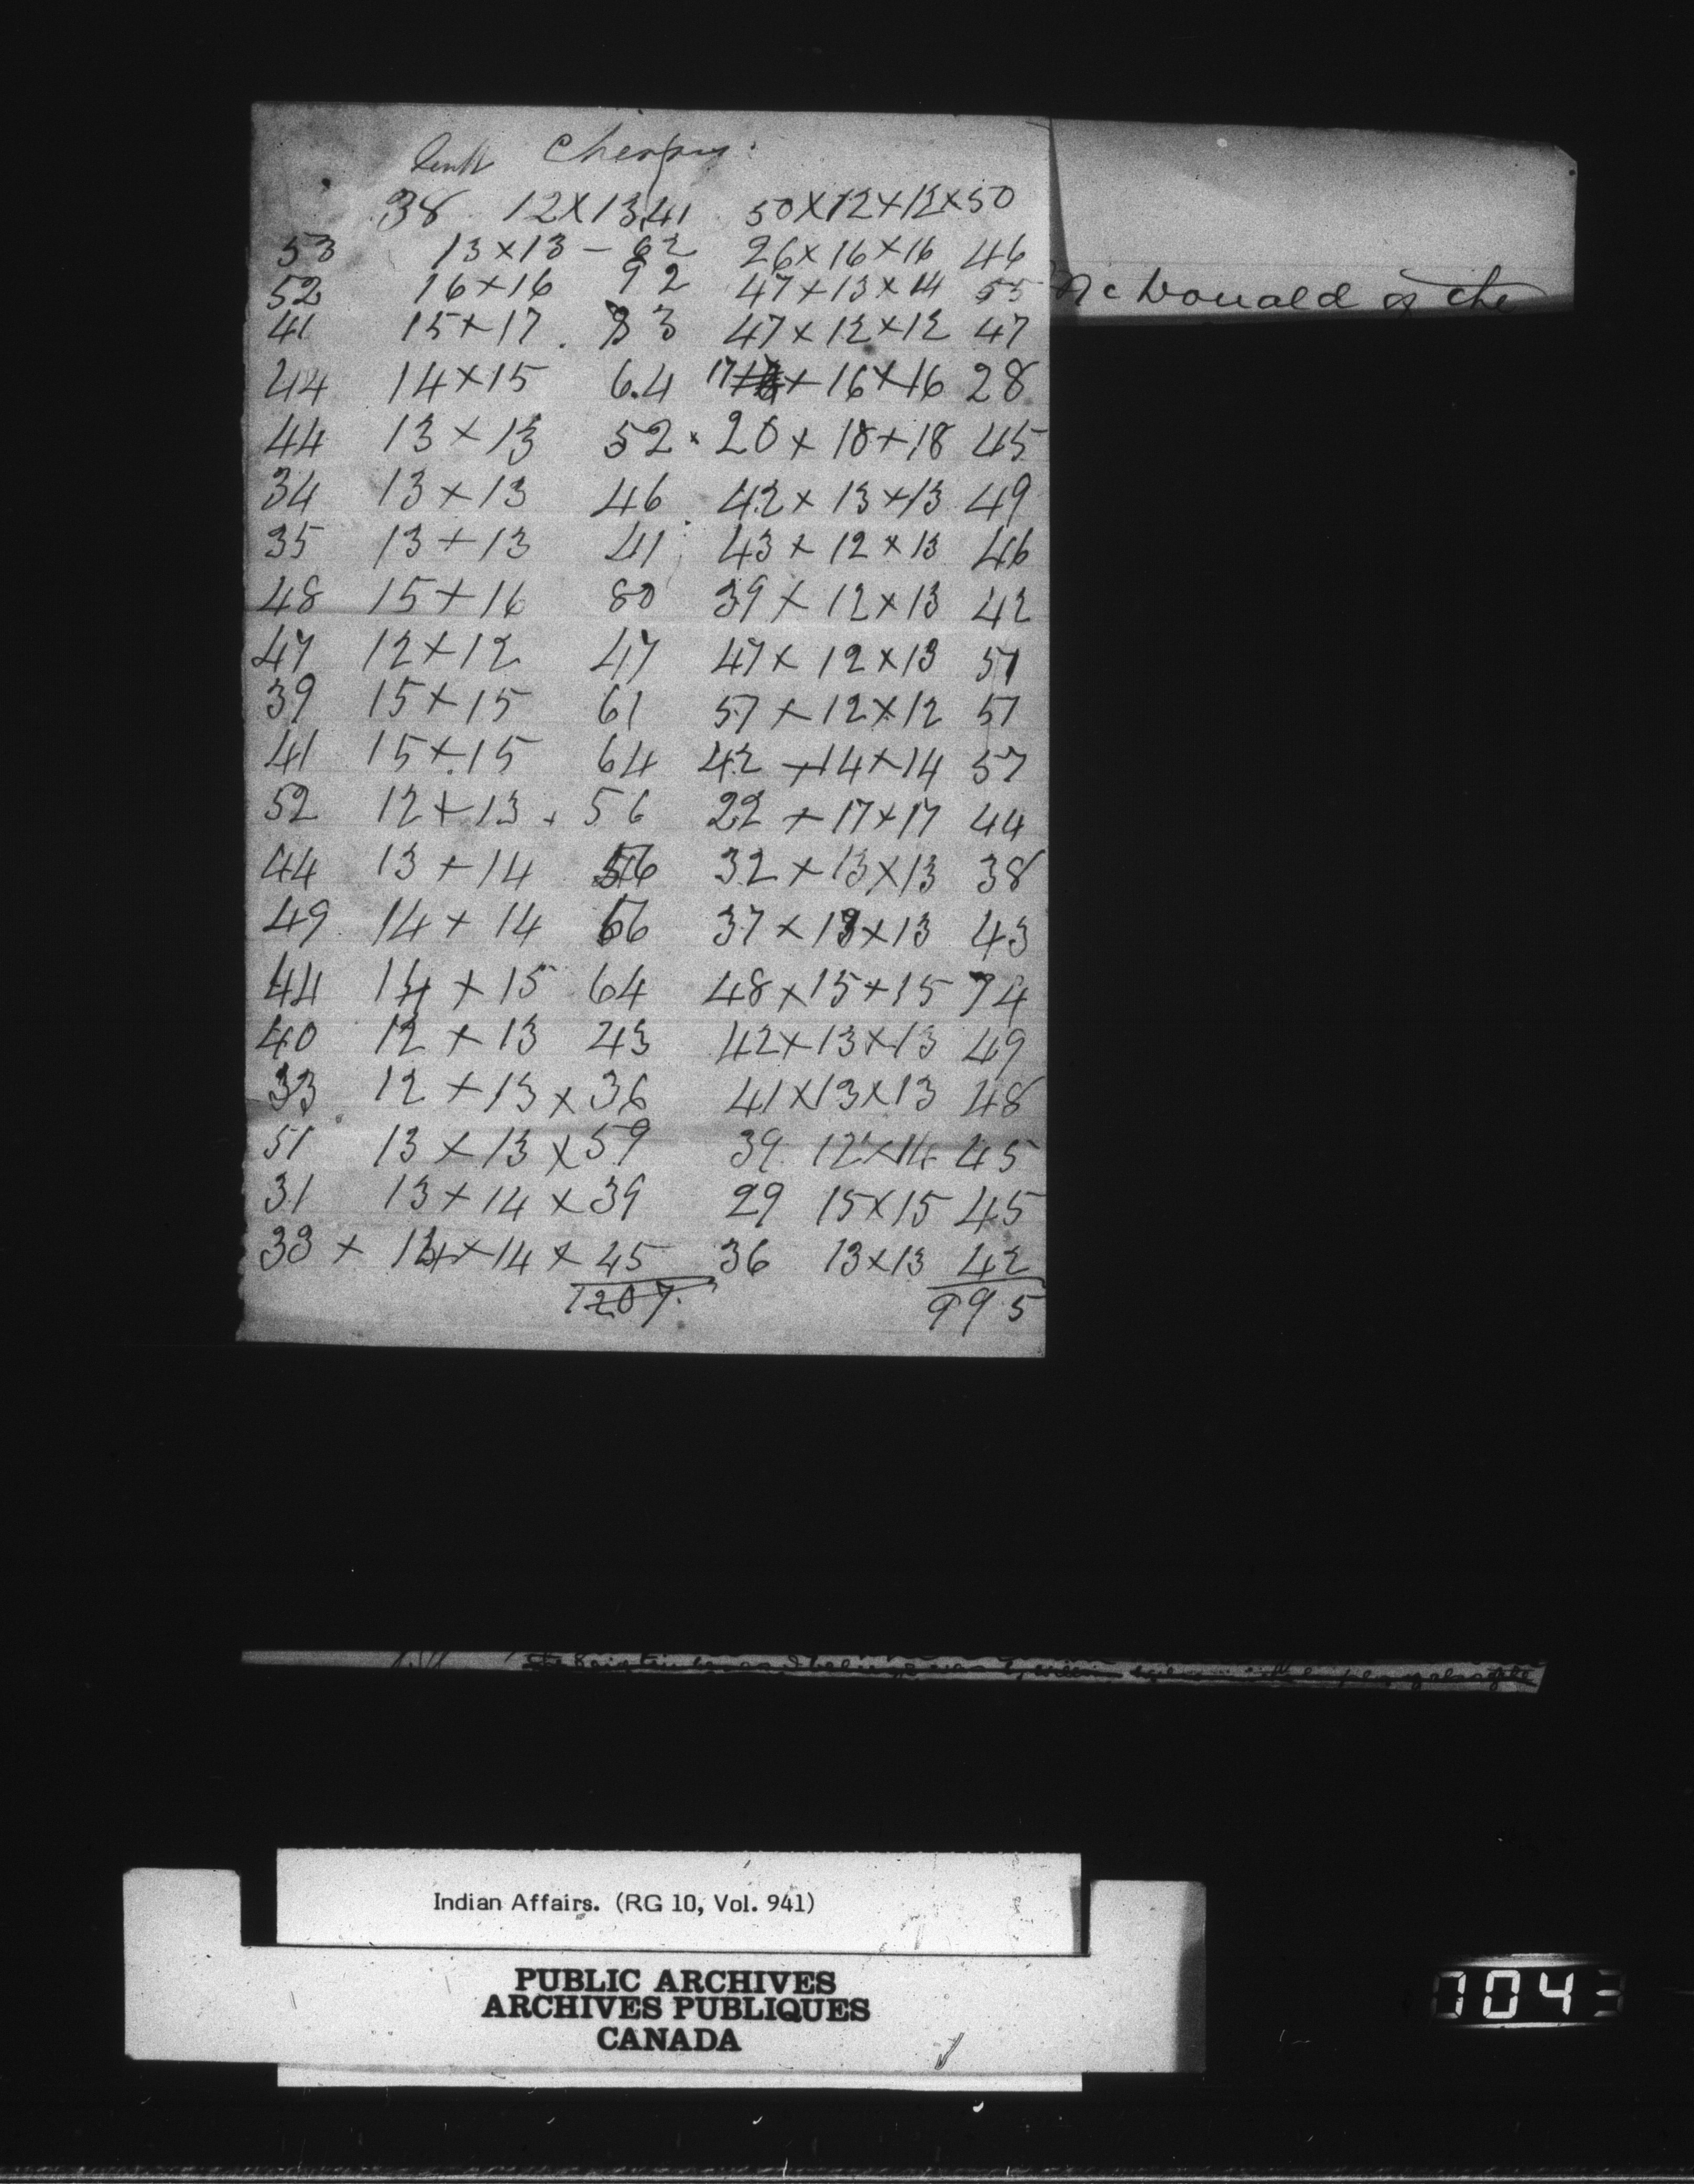 38 12×13 41 50×12×12×50
53 13×13 – 62 26×16×16 46
52 16×16 92 47×13×14 55
McDonald of the
41 15×17 . 83 47×12×12 47
44 14×15 64 17 × 16×16 28
44 13×13 52 × 20 × 18×18 45
34 13×13 46 42 × 13×13 49
35 13+13 41 43 × 12×13 46
48 15+16 80 39 × 12×13 42
47 12+12 47 47 × 12×13 51
39 15+15 61 57 × 12×12 57
41 15+15 64 42 × 14×14 57
52 12+13 . 56 22 × 17×17 44
44 13+14 56 32 × 13×13 38
49 14+14 66 37 × 13×13 43
44 14+15 64 48 × 15+15 74
40 12+13 43 42×13×13 49
33 12+13 × 36 41×13×13 48
51 13×13×59 39 12×14 45
31 13+14×39 29 15×15 45
33 × 14×14×45 36 13×13 42
1207. 995
Indian Affairs. (RG 10, Vol. 941)
PUBLIC ARCHIVES
ARCHIVES PUBLIQUES
CANADA